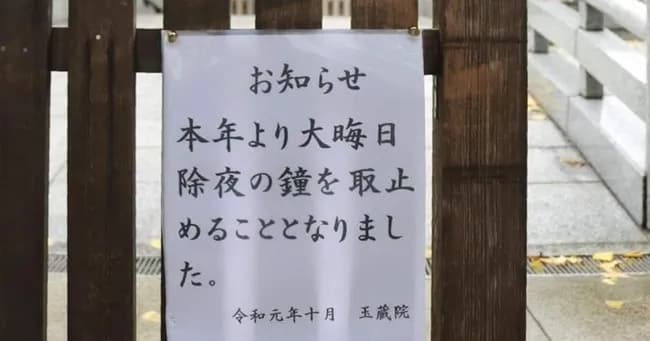 お知らせ
本年より大晦日
除夜の鐘を取止
めることとなりまし
た。
令和元年十月　玉蔵院